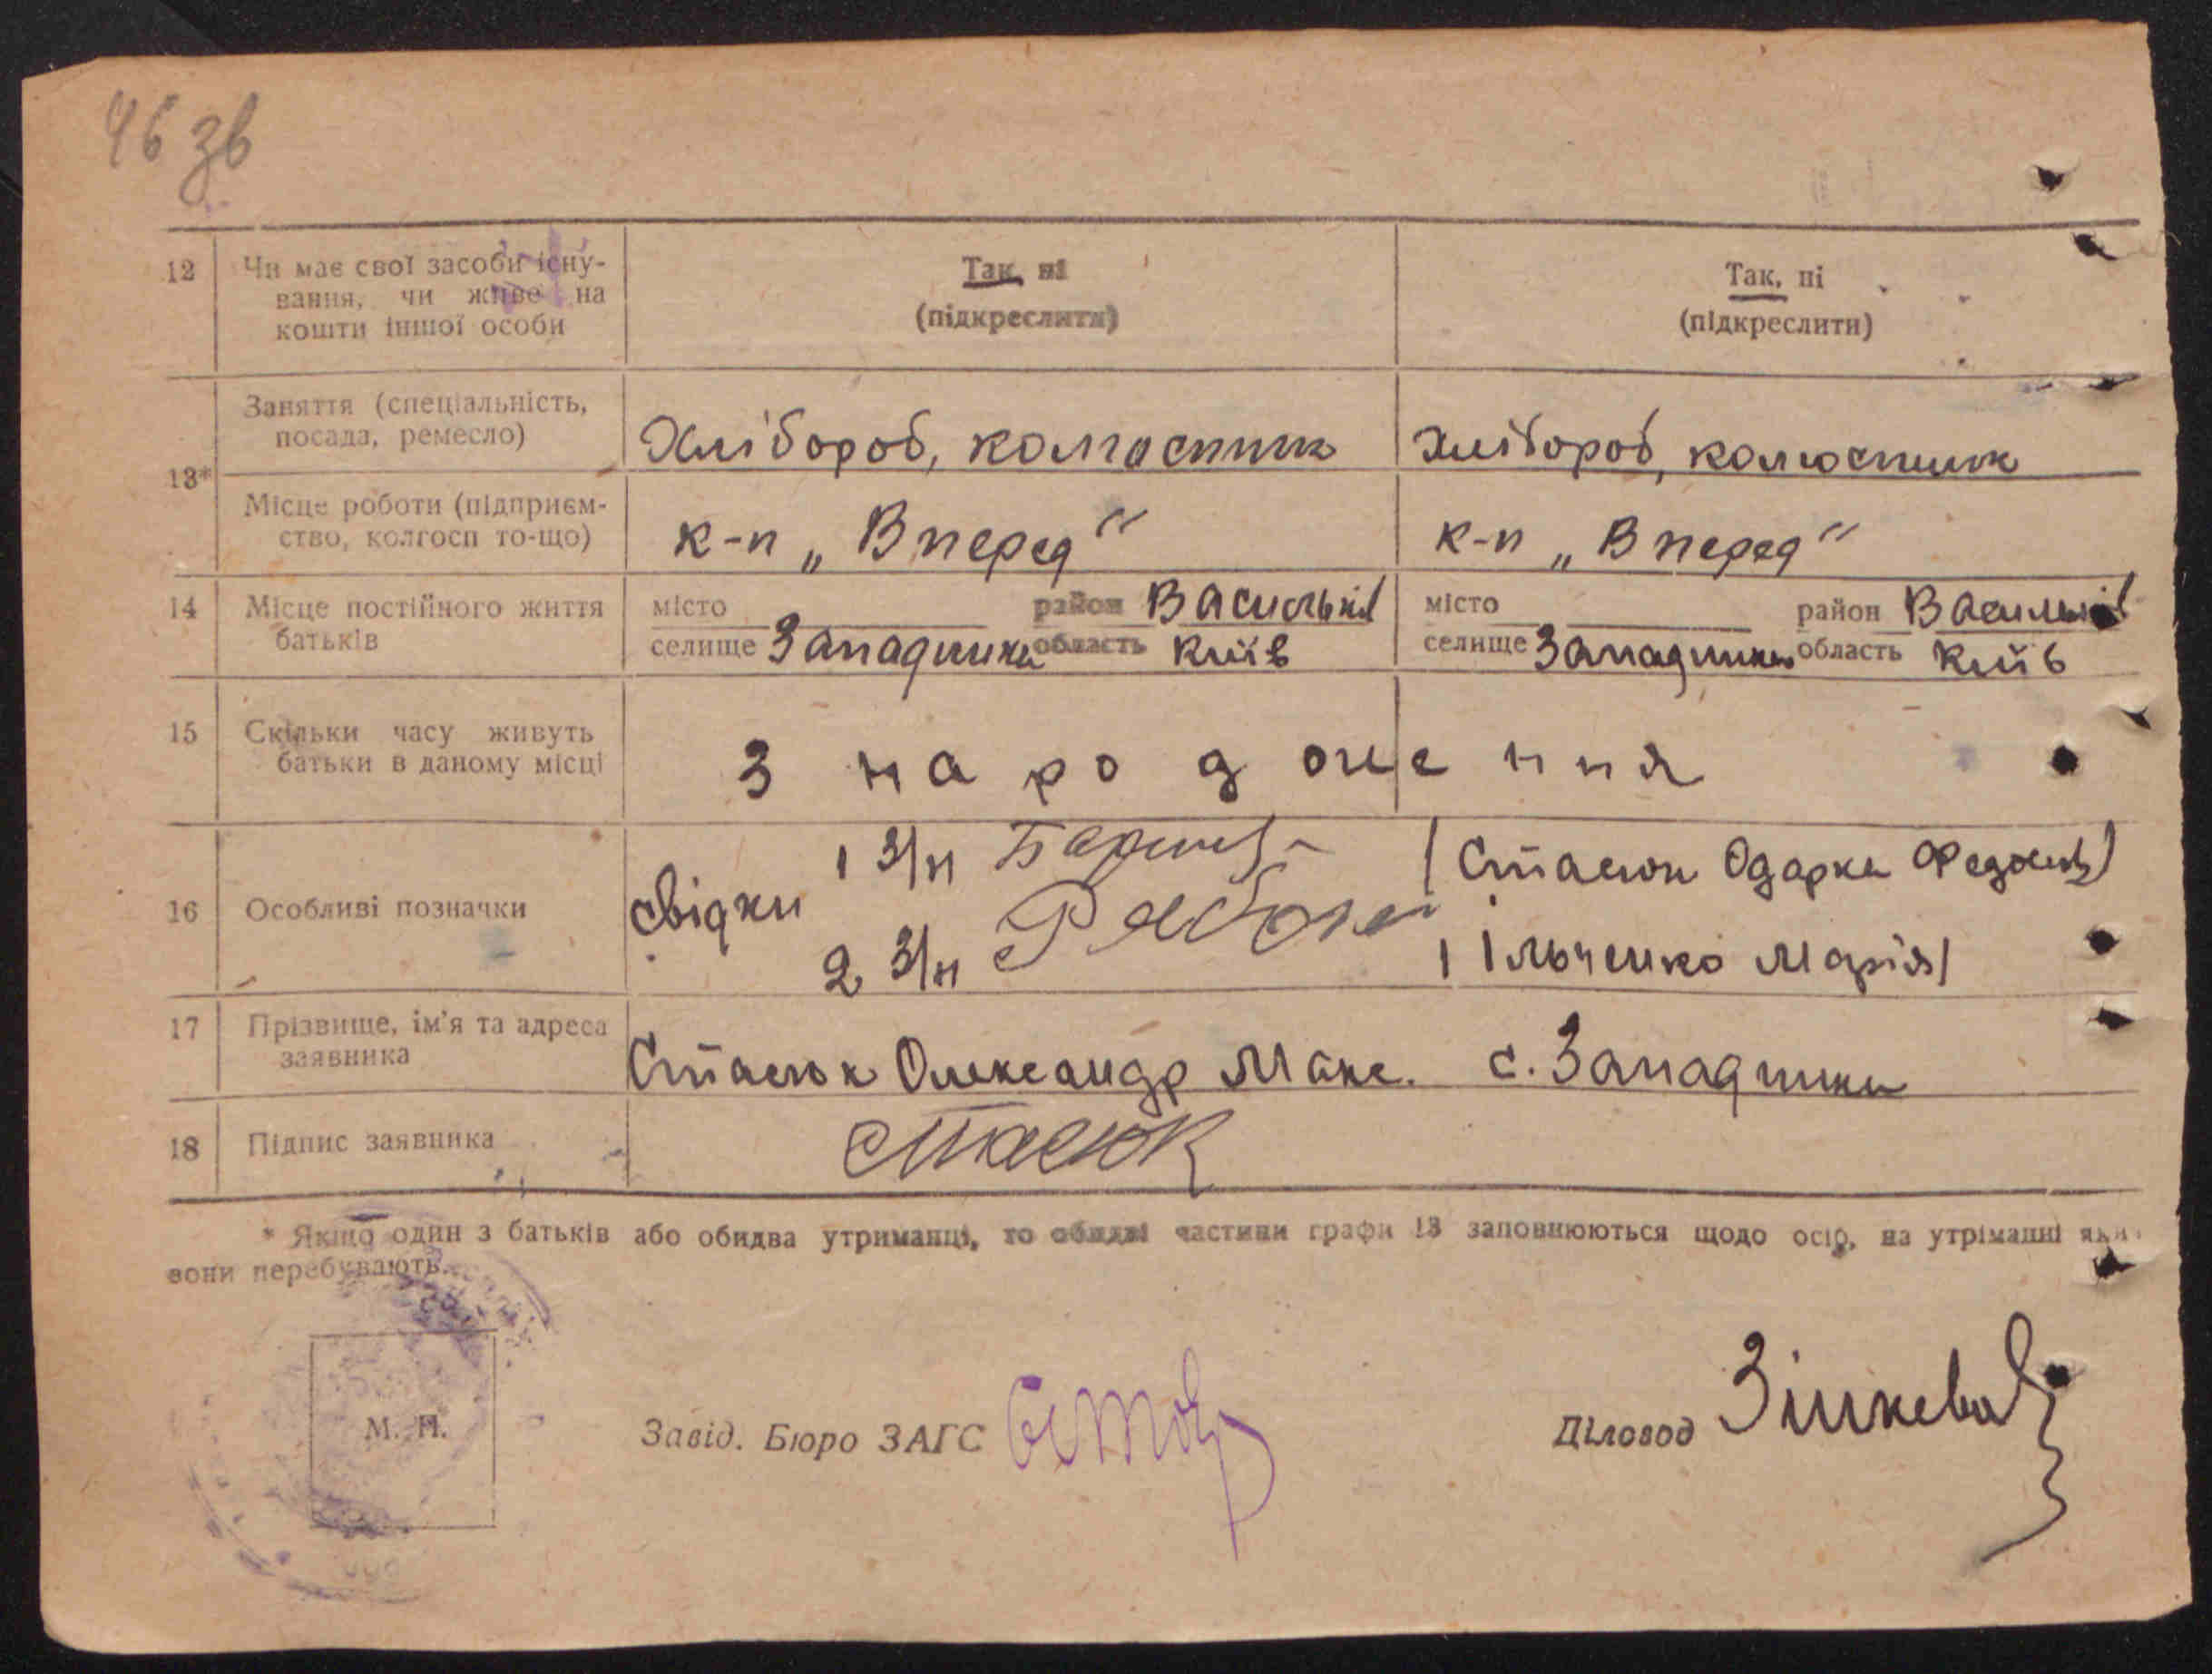 46 зв
12 Чи має свої засоби існу-
вання, чи живе на
кошти іншої особи
Так, ні
(підкреслити)
Так, ні
(підкреслити)
13*
Заняття (спеціальність,
посада, ремесло)
Хлібороб, колгоспник
Хлібороб, колгоспник
Місце роботи (підприєм-
ство, колгосп то-що)
к-п „Вперед"
к-п „Вперед"
14 Місце постійного життя
батьків
місто район Васильків
селище Западинка область Київ
місто район Васильків
селище Западинка область Київ
15 Скільки часу живуть
батьки в даному місці
З народження
16 Особливі позначки
свідки
1 З/п (Стасюк Одарка
2 З/п (Ільченко Марія)
17 Прізвище, ім'я та адреса
заявника
Стасюк Олександр Макс. с. Западинка
18 Підпис заявника
Стасюк
* Якщо один з батьків або обидва утриманці, то обидві частини графи 13 заповнюються щодо осіб, на утріманні яких
вони перебувають.
М. П.
Завід. Бюро ЗАГС
Діловод